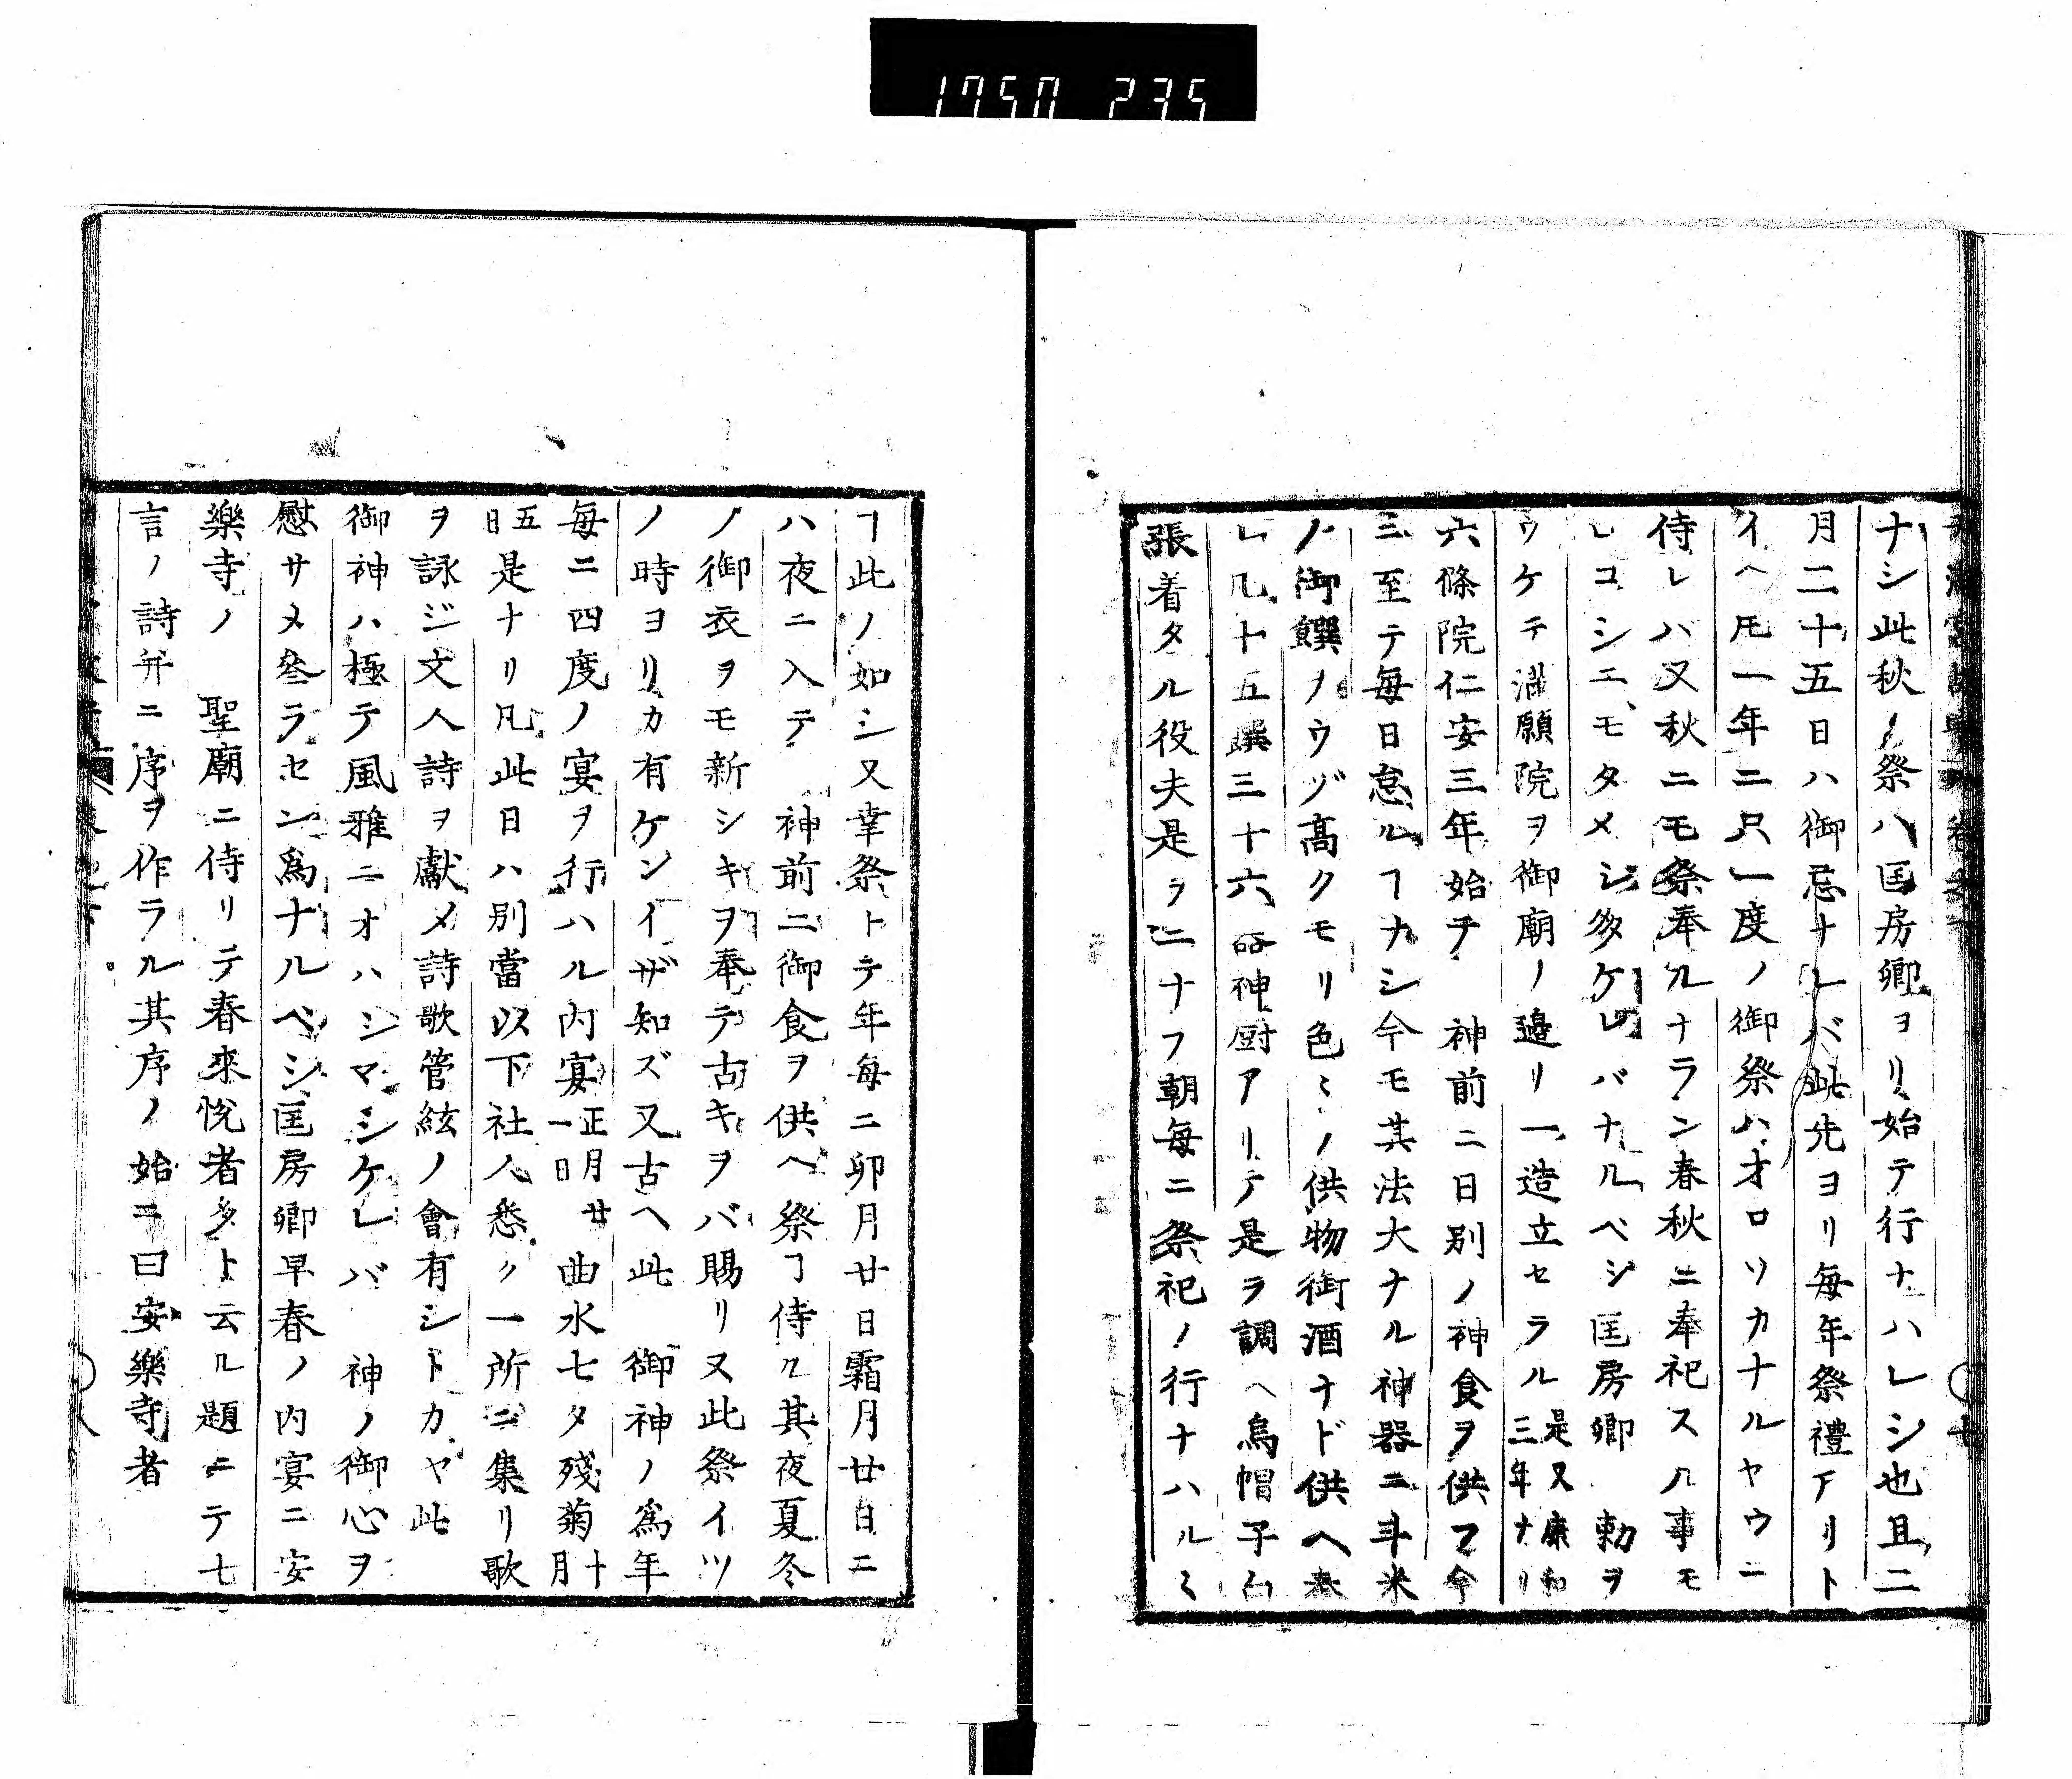 1750 235
ナシ此秋ノ祭ハ匡房卿ヨリ始テ行ナハレシ也且二
月二十五日ハ御忌ナレバ此先ヨリ毎年祭禮アリト
イヘ𪜈一年ニ只一度ノ御祭ハオロソカナルヤウニ
侍レハ又秋ニモ祭奉ルナラン春秋ニ奉祀スル事モ
レコシニモタメシ多ケレバナルベシ匡房卿 勅ヲ
ウケテ滿願院ヲ御廟ノ邉リニ造立セラル是又康和三年ナリ
六條院仁安三年始テ 神前ニ日別ノ神食ヲ供フ今
ニ至テ毎日怠ルヿナシ今モ其法大ナル神器ニ斗米
ノ御饌ヲウヅ高クモリ色〻ノ供物御酒ナド供ヘ奉
レ凡十五饌三十六器神厨アリテ是ヲ調ヘ烏帽子白
張着タル役夫是ヲニナフ朝毎ニ祭祀ノ行ナハル〻
ヿ此ノ如シ又幸祭トテ年毎ニ卯月廿日霜月廿日ニ
ハ夜ニ入テ 神前ニ御食ヲ供ヘ祭ヿ侍ル其夜夏冬
ノ御衣ヲモ新シキヲ奉テ古キヲバ賜リ又此祭イツ
ノ時ヨリカ有ケンイザ知ズ又古ヘ此 御神ノ爲年
毎ニ四度ノ宴ヲ行ハル内宴正月廿一日 曲水七夕殘菊十月
五日是ナリ凡此日ハ別當以下社人悉ク一所ニ集リ歌
ヲ詠ジ文人詩ヲ獻メ詩歌管絃ノ會有シトカヤ此
御神ハ極テ風雅ニオハシマシケレバ 神ノ御心ヲ
慰サメ叅ラセン爲ナルベシ匡房卿早春ノ内宴ニ安
樂寺ノ 聖廟ニ侍リテ春來悅者多ト云ル題ニテ七
言ノ詩幷ニ序ヲ作ラル其序ノ始ニ曰安樂寺者